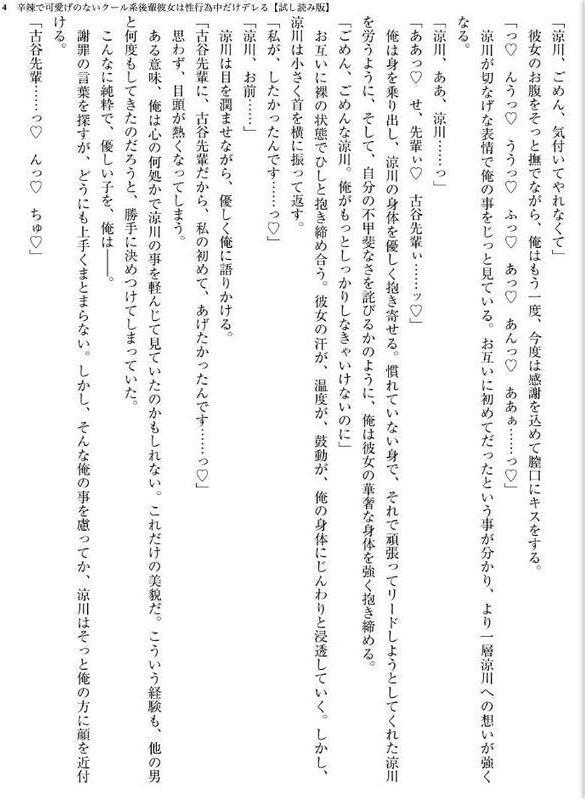 4 辛辣で可愛げのないクール系後輩彼女は性行為中だけデレる【試し読み版】
「涼川、ごめん、気付いてやれなくて」
彼女のお腹をそっと撫でながら、俺はもう一度、今度は感謝を込めて膣口にキスをする。
「っ♡ んうっ♡ ううっ♡ ふっ♡ あっ♡ あんっ♡ ああぁ……っ♡」
涼川が切なげな表情で俺の事をじっと見ている。お互いに初めてだったという事が分かり、より一層涼川への想いが強く
なる。
「涼川、ああ、涼川……っ」
「ああっ♡ せ、先輩ぃ♡ 古谷先輩ぃ……ッ♡」
俺は身を乗り出し、涼川の身体を優しく抱き寄せる。慣れていない身で、それで頑張ってリードしようとしてくれた涼川
を労うように、そして、自分の不甲斐なさを詫びるかのように、俺は彼女の華奢な身体を強く抱き締める。
「ごめん、ごめんな涼川。俺がもっとしっかりしなきゃいけないのに」
お互いに裸の状態でひしと抱き締め合う。彼女の汗が、温度が、鼓動が、俺の身体にじんわりと浸透していく。しかし、
涼川は小さく首を横に振って返す。
「私が、したかったんです……っ♡」
「涼川、お前……」
涼川は目を潤ませながら、優しく俺に語りかける。
「古谷先輩に、古谷先輩だから、私の初めて、あげたかったんです……っ♡」
思わず、目頭が熱くなってしまう。
ある意味、俺は心の何処かで涼川の事を軽んじて見ていたのかもしれない。これだけの美貌だ。こういう経験も、他の男
と何度もしてきたのだろうと、勝手に決めつけてしまっていた。
こんなに純粋で、優しい子を、俺は――。
謝罪の言葉を探すが、どうにも上手くまとまらない。しかし、そんな俺の事を慮ってか、涼川はそっと俺の方に顔を近付
ける。
「古谷先輩……っ♡ んっ♡ ちゅ♡」